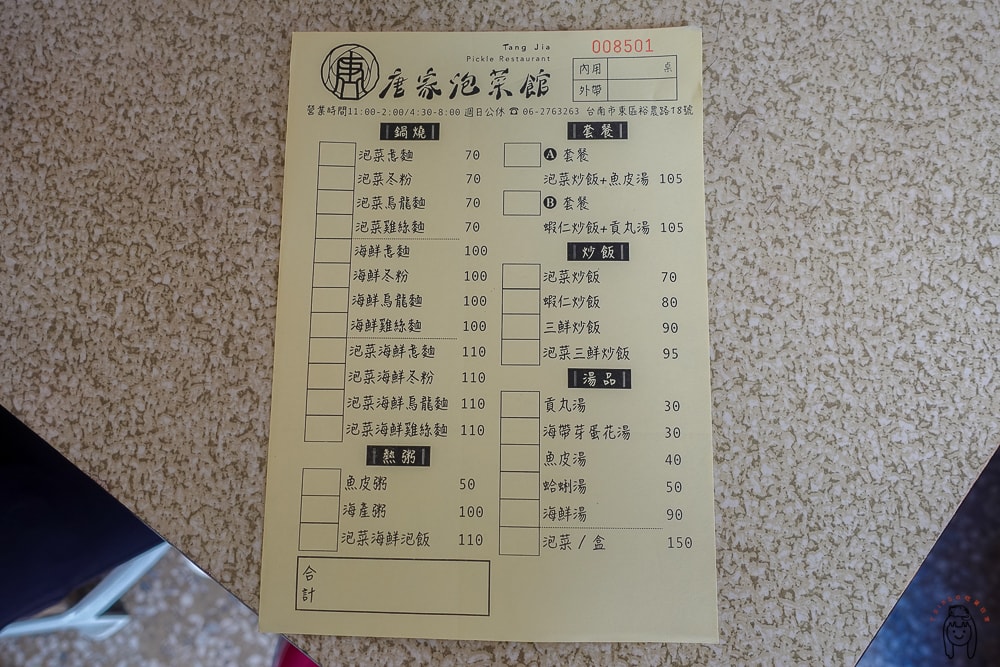 Tang Jia
Pickle Restaurant
唐家泡菜館
008501
內用 桌
外帶
營業時間11:00-2:00/4:30-8:00 週日公休 ☎ 06-2763263 台南市東區裕農路18號
鍋燒
泡菜意麵 70
泡菜冬粉 70
泡菜烏龍麵 70
泡菜雞絲麵 70
海鮮意麵 100
海鮮冬粉 100
海鮮烏龍麵 100
海鮮雞絲麵 100
泡菜海鮮意麵 110
泡菜海鮮冬粉 110
泡菜海鮮烏龍麵 110
泡菜海鮮雞絲麵 110
熱粥
魚皮粥 50
海產粥 100
泡菜海鮮泡飯 110
合計
套餐
A 套餐
泡菜炒飯+魚皮湯 105
B 套餐
蝦仁炒飯+貢丸湯 105
炒飯
泡菜炒飯 70
蝦仁炒飯 80
三鮮炒飯 90
泡菜三鮮炒飯 95
湯品
貢丸湯 30
海帶芽蛋花湯 30
魚皮湯 40
蛤蜊湯 50
海鮮湯 90
泡菜/盒 150